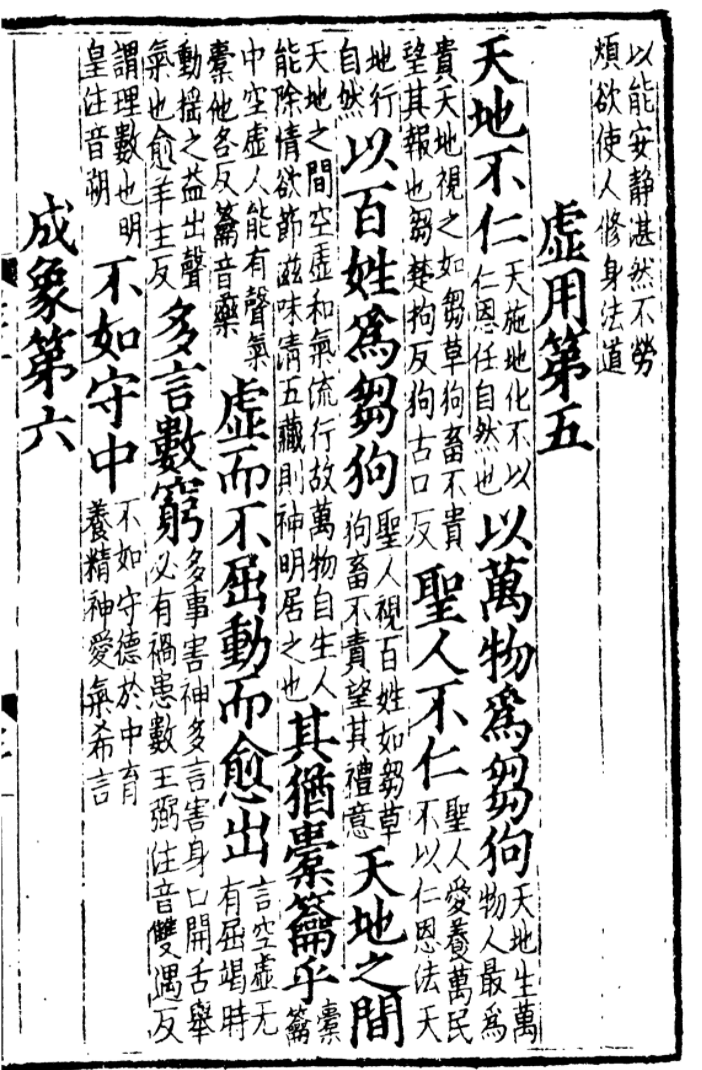 以能安静湛然不勞煩欲使人修身法道
虚用第五
天地不仁天施地化不以仁恩任自然也以萬物爲芻狗天地生萬物人最爲
貴天地視之如芻草狗畜不貴望其報也芻楚拘反狗古口反聖人不仁聖人愛養萬民不以仁恩法天
地行自然以百姓爲芻狗聖人視百姓如芻草狗畜不責望其禮意天地之間
天地之間空虚和氣流行故萬物自生人能除情欲節滋味清五藏則神明居之也其猶橐籥乎橐籥
中空虚人能有聲氣橐他各反籥音藥虚而不屈動而愈出言空虚无有屈竭時
動揺之益出聲氣也愈羊主反多言數窮多事害神多言害身口開舌舉必有禍患數王弼注音雙遇反
謂理數也明皇注音朔不如守中不如守德於中育養精神愛氣希言
成象第六